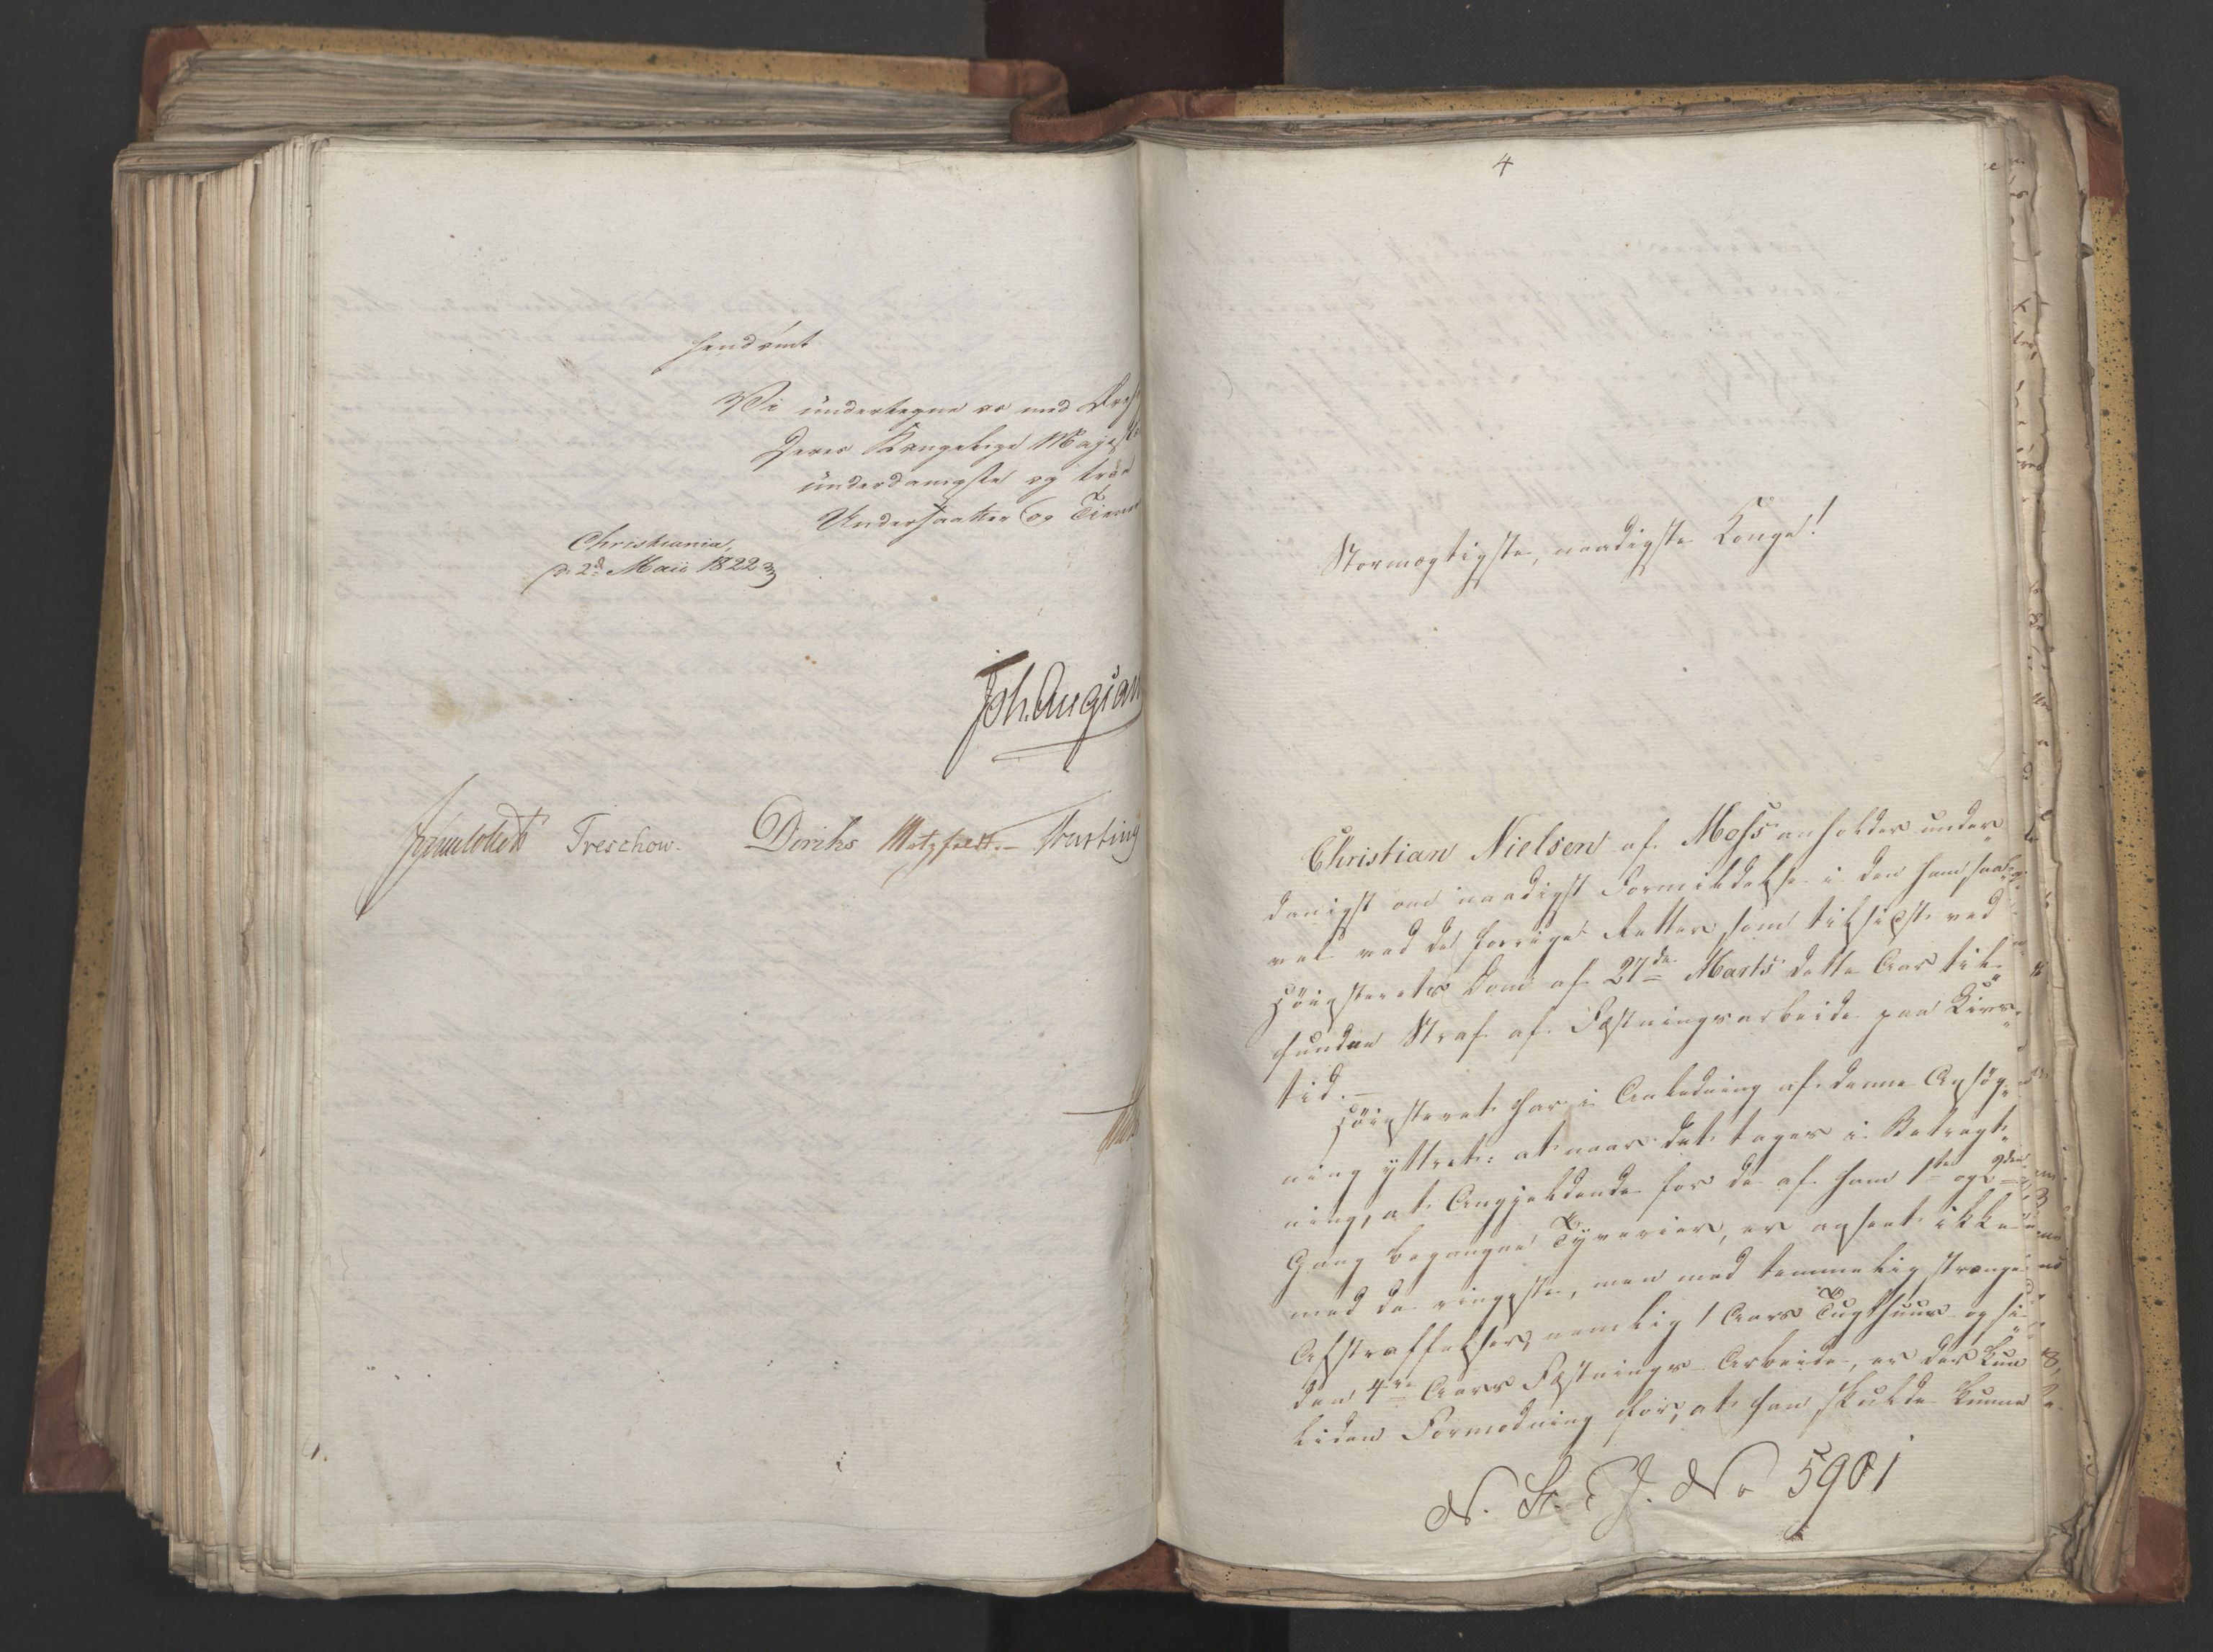 sendes.
Vi undertegne os med
Deres Kongelige Majest
underdanigste og troe
Undersaatter og Tiene
Christiania,
d. 2d Maii 1822
Joh. Aug San
Treschow.
Diriks
Motzfeldt.
4
Stormægtigste, naadigste Konge!
Christian Nielsen af Moss anholder under„
danigst om naadigst Formildelse i den ham saa„
vel ved de forrige Retter, som tilsidst ved
Höiesterets Dom af 27de Marts dette Aar til„
fundne Straf af Fæstningsarbeide paa Livs„
tid. –
Höiesteret har i Anledning af denne Ansög„
ning yttret: at naar det tages i Betragt„
ning, at Angjeldende for de af ham 1ste og 2den
Gang begangne Tyverier, er anseet ikke
med de ringeste, men med temmelig strænge
Afstraffelser, nemlig 1 Aars Tugthuus og si„
den 4re Aars Fæstnings Arbeide, er der kun
liden Formodning for, at han skulde kunne
N. St. S. J. No 5901